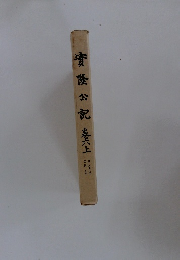 實隆公記 巻六上